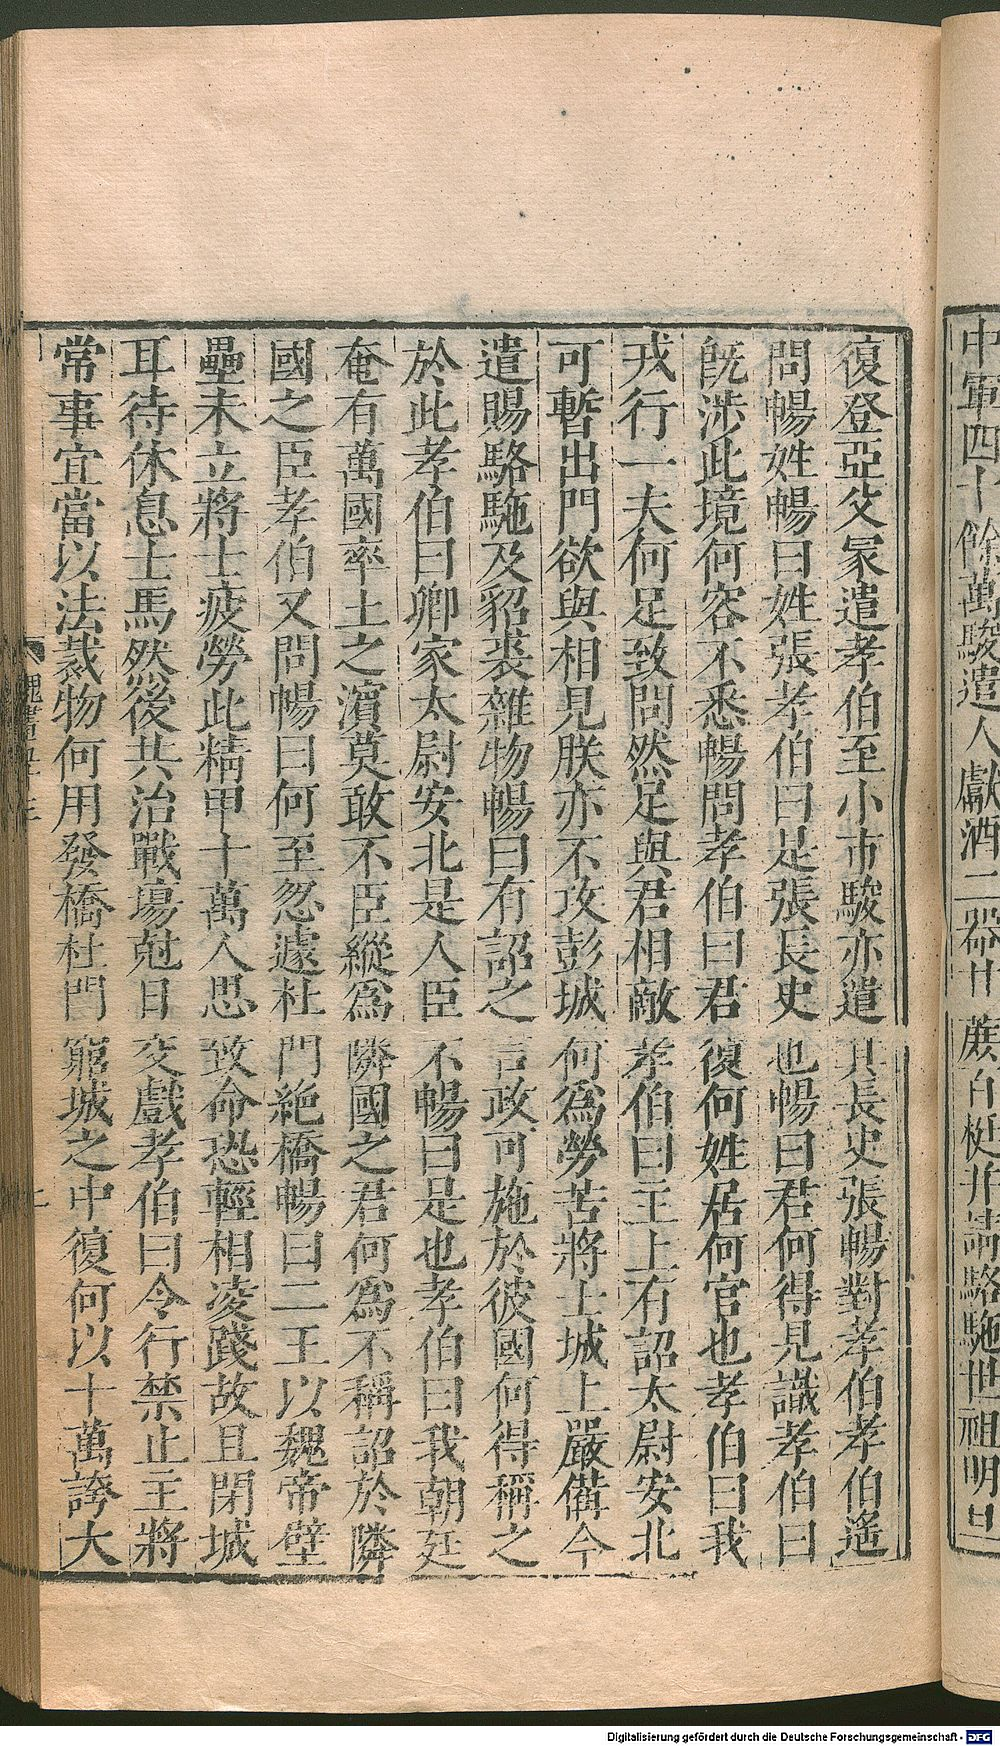 中軍四十餘萬駿遣人獻酒二器甘蔗百梃并請駱駞世祖明旦
復登亞父冢遣孝伯至小市駿亦遣其長史張暢對孝伯孝伯遙
問暢姓暢曰姓張孝伯曰是張長史也暢曰君何得見識孝伯曰
旣涉此境何容不悉暢問孝伯曰君復何姓居何官也孝伯曰我
戎行一夫何足致問然足與君相敵孝伯曰主上有詔太尉安北
可暫出門欲與相見朕亦不攻彭城何爲勞苦將士城上嚴備今
遣賜駱駞及貂裘雜物暢曰有詔之言政可施於彼國何得稱之
於此孝伯曰卿家太尉安北是人臣不暢曰是也孝伯曰我朝廷
奄有萬國率土之濱莫敢不臣縱爲隣國之君何爲不稱詔於隣
國之臣孝伯又問暢曰何至怱遽杜門絶橋暢曰二王以魏帝壁
壘未立將士疲勞此精甲十萬人思致命恐輕相凌踐故且閉城
耳待休息士馬然後共治戰場尅日交戲孝伯曰令行禁止主將
常事宜當以法裁物何用發橋杜門窮城之中復何以十萬誇大
魏書五十三
Digitalisierung gefördert durch die Deutsche Forschungsgemeinschaft - DFG